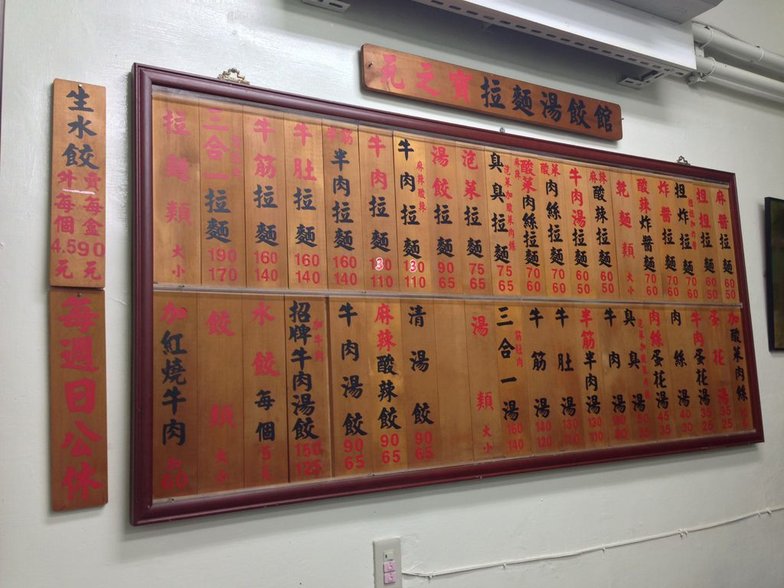 元之寶拉麵湯餃館
生水餃
賣每盒90元
外每個4.5元
每週日公休
拉麵類 大小
三合一拉麵 190 170
牛筋拉麵 160 140
牛肚拉麵 160 140
半筋半肉拉麵 160 140
牛肉拉麵 130 110
麻辣酸辣牛肉拉麵 130 110
湯餃拉麵 90 65
泡菜拉麵 75 65
泡菜加酸菜肉絲臭臭拉麵 75 65
麻辣酸菜肉絲拉麵 70 60
酸菜肉絲拉麵 70 60
牛肉湯拉麵 60 50
麻辣酸辣拉麵 60 50
乾麵類 大小
酸辣炸醬麵 70 60
炸醬拉麵 70 60
担担加炸醬担炸拉麵 70 60
担担拉麵 60 50
麻醬拉麵 60 50
加紅燒牛肉
餃類
水餃每個5元
加牛肉招牌牛肉湯餃 150 125
牛肉湯餃 90 65
麻辣酸辣餃 90 65
清湯餃 90 65
湯類 大小
筋肚肉三合一湯 160 140
牛筋湯 140 120
牛肚湯 140 120
半筋半肉湯 130
牛肉湯
臭臭湯
肉絲蛋花湯 45
肉絲湯 40 30
牛肉蛋花湯 35 25
蛋花湯 35 25
加酸菜肉絲